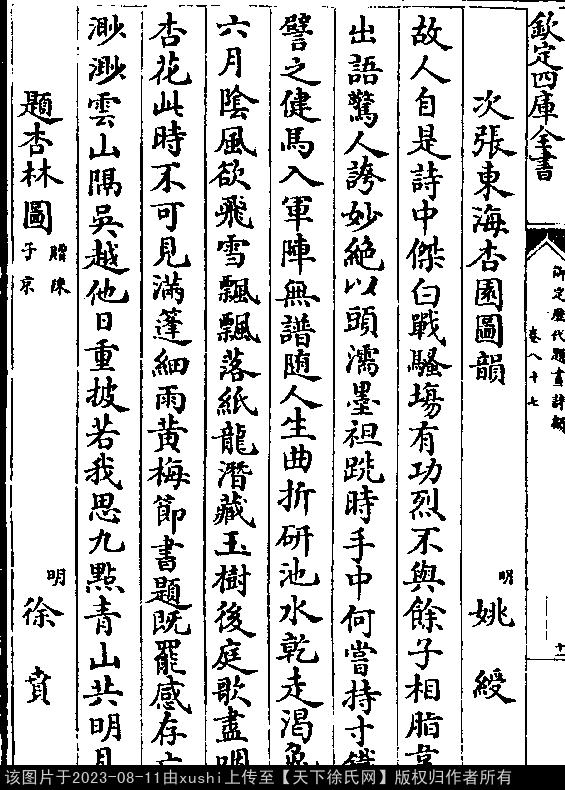 欽定四庫全書
御定歷代題畫詩類
卷八十七
十二
次張東海杏園圖韻
明 姚綬
故人自是詩中傑白戰騷場有功烈不與餘子相脂韋
出語驚人誇妙絶以頭濡墨袒跣時手中何嘗持寸鐵
譬之健馬入軍陣無譜随人生曲折研池水乾走渴
六月陰風欲飛雪飄飄落紙龍潛藏玉樹後庭歌盡
杏花此時不可見滿蓬細雨黄梅節書題既罷感存
渺渺雲山隅吳越他日重披若我思九點青山共明月
題杏林圖 贈陳子京
明 徐賁
该图片于2023-08-11由xushi上传至【天下徐氏网】版权归作者所有